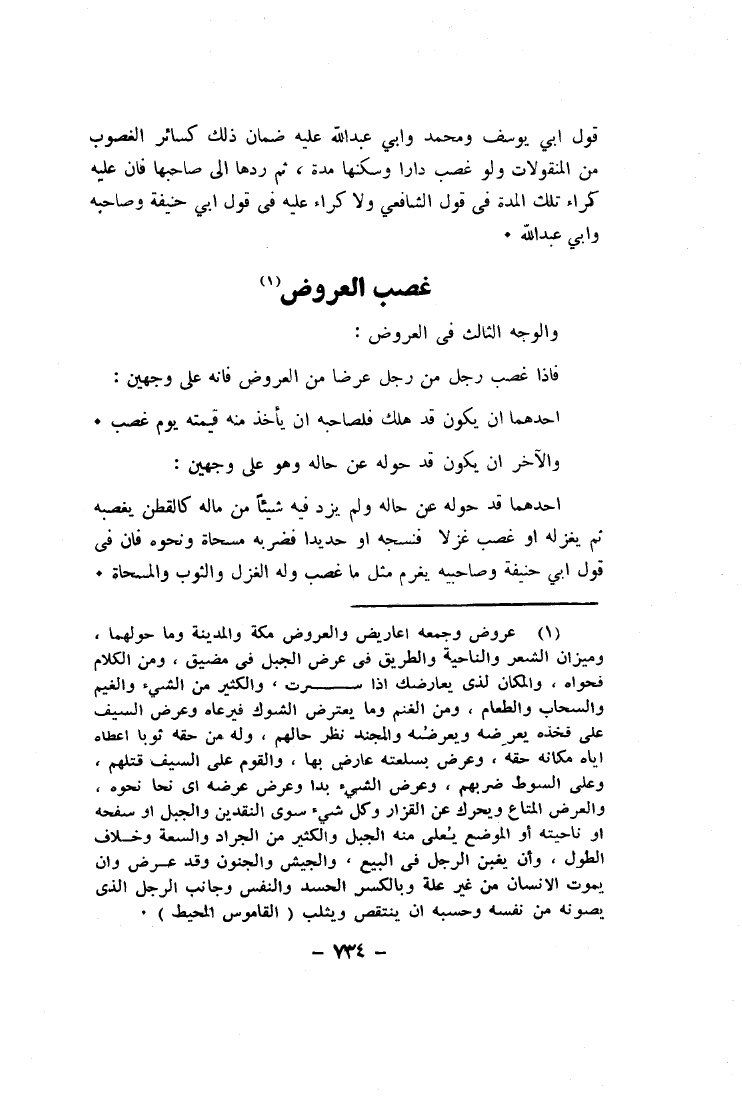 قول ابي يوسف ومحمد وابي عبدالله عليه ضمان ذلك كسائر الغصوب
من المنقولات ولو غصب دارا وسكنها مدة ، ثم ردها الى صاحبها فان عليه
كراء تلك المدة فى قول الشافعي ولا كراء عليه فى قول ابي حنيفة وصاحبه
وابي عبدالله •
غصب العروض(١)
والوجه الثالث فى العروض :
فاذا غصب رجل من رجل عرضا من العروض فانه على وجهين :
احدهما ان يكون قد هلك فلصاحبه ان يأخذ منه قيمته يوم غصب •
والآخر ان يكون قد حوله عن حاله وهو على وجهين :
احدهما قد حوله عن حاله ولم يزد فيه شيئاً من ماله كالقطن يغصبه
ثم يغزله او غصب غزلا فنسجه او حديدا فضربه مسحاة ونحوه فان فى
قول ابي حنيفة وصاحبيه يغرم مثل ما غصب وله الغزل والثوب والمسحاة •
(١) عروض وجمعه اعاريض والعروض مكة والمدينة وما حولهما ،
وميزان الشعر والناحية والطريق فى عرض الجبل فى مضيق ، ومن الكلام
فحواه ، والمكان لذى يعارضك اذا ســـــرت ، والكثير من الشيء والغيم
والسحاب والطعام ، ومن الغنم وما يعترض الشوك فيرعاه وعرض السيف
على فخذه يعرضه ويعرضه والمجند نظر حالهم ، وله من حقه ثوبا اعطاه
اياه مكانه حقه ، وعرض بسلعته عارض بها ، والقوم على السيف قتلهم ،
وعلى السوط ضربهم ، وعرض الشيء بدا وعرض عرضه اى نحا نحوه ،
والعرض المتاع ويحرك عن القزار وكل شيء سوى النقدين والجبل او سفحه
او ناحيته أو الموضع يُعلى منه الجبل والكثير من الجراد والسعة وخــلاف
الطول ، وأن يغبن الرجل في البيع ، والجيش والجنون وقد عــرض وان
يموت الانسان من غير علة وبالكسر الحسد والنفس وجانب الرجل الذى
يصونه من نفسه وحسبه ان ينتقص ويثلب ( القاموس المحيط ) •
– ٧٣٤ –